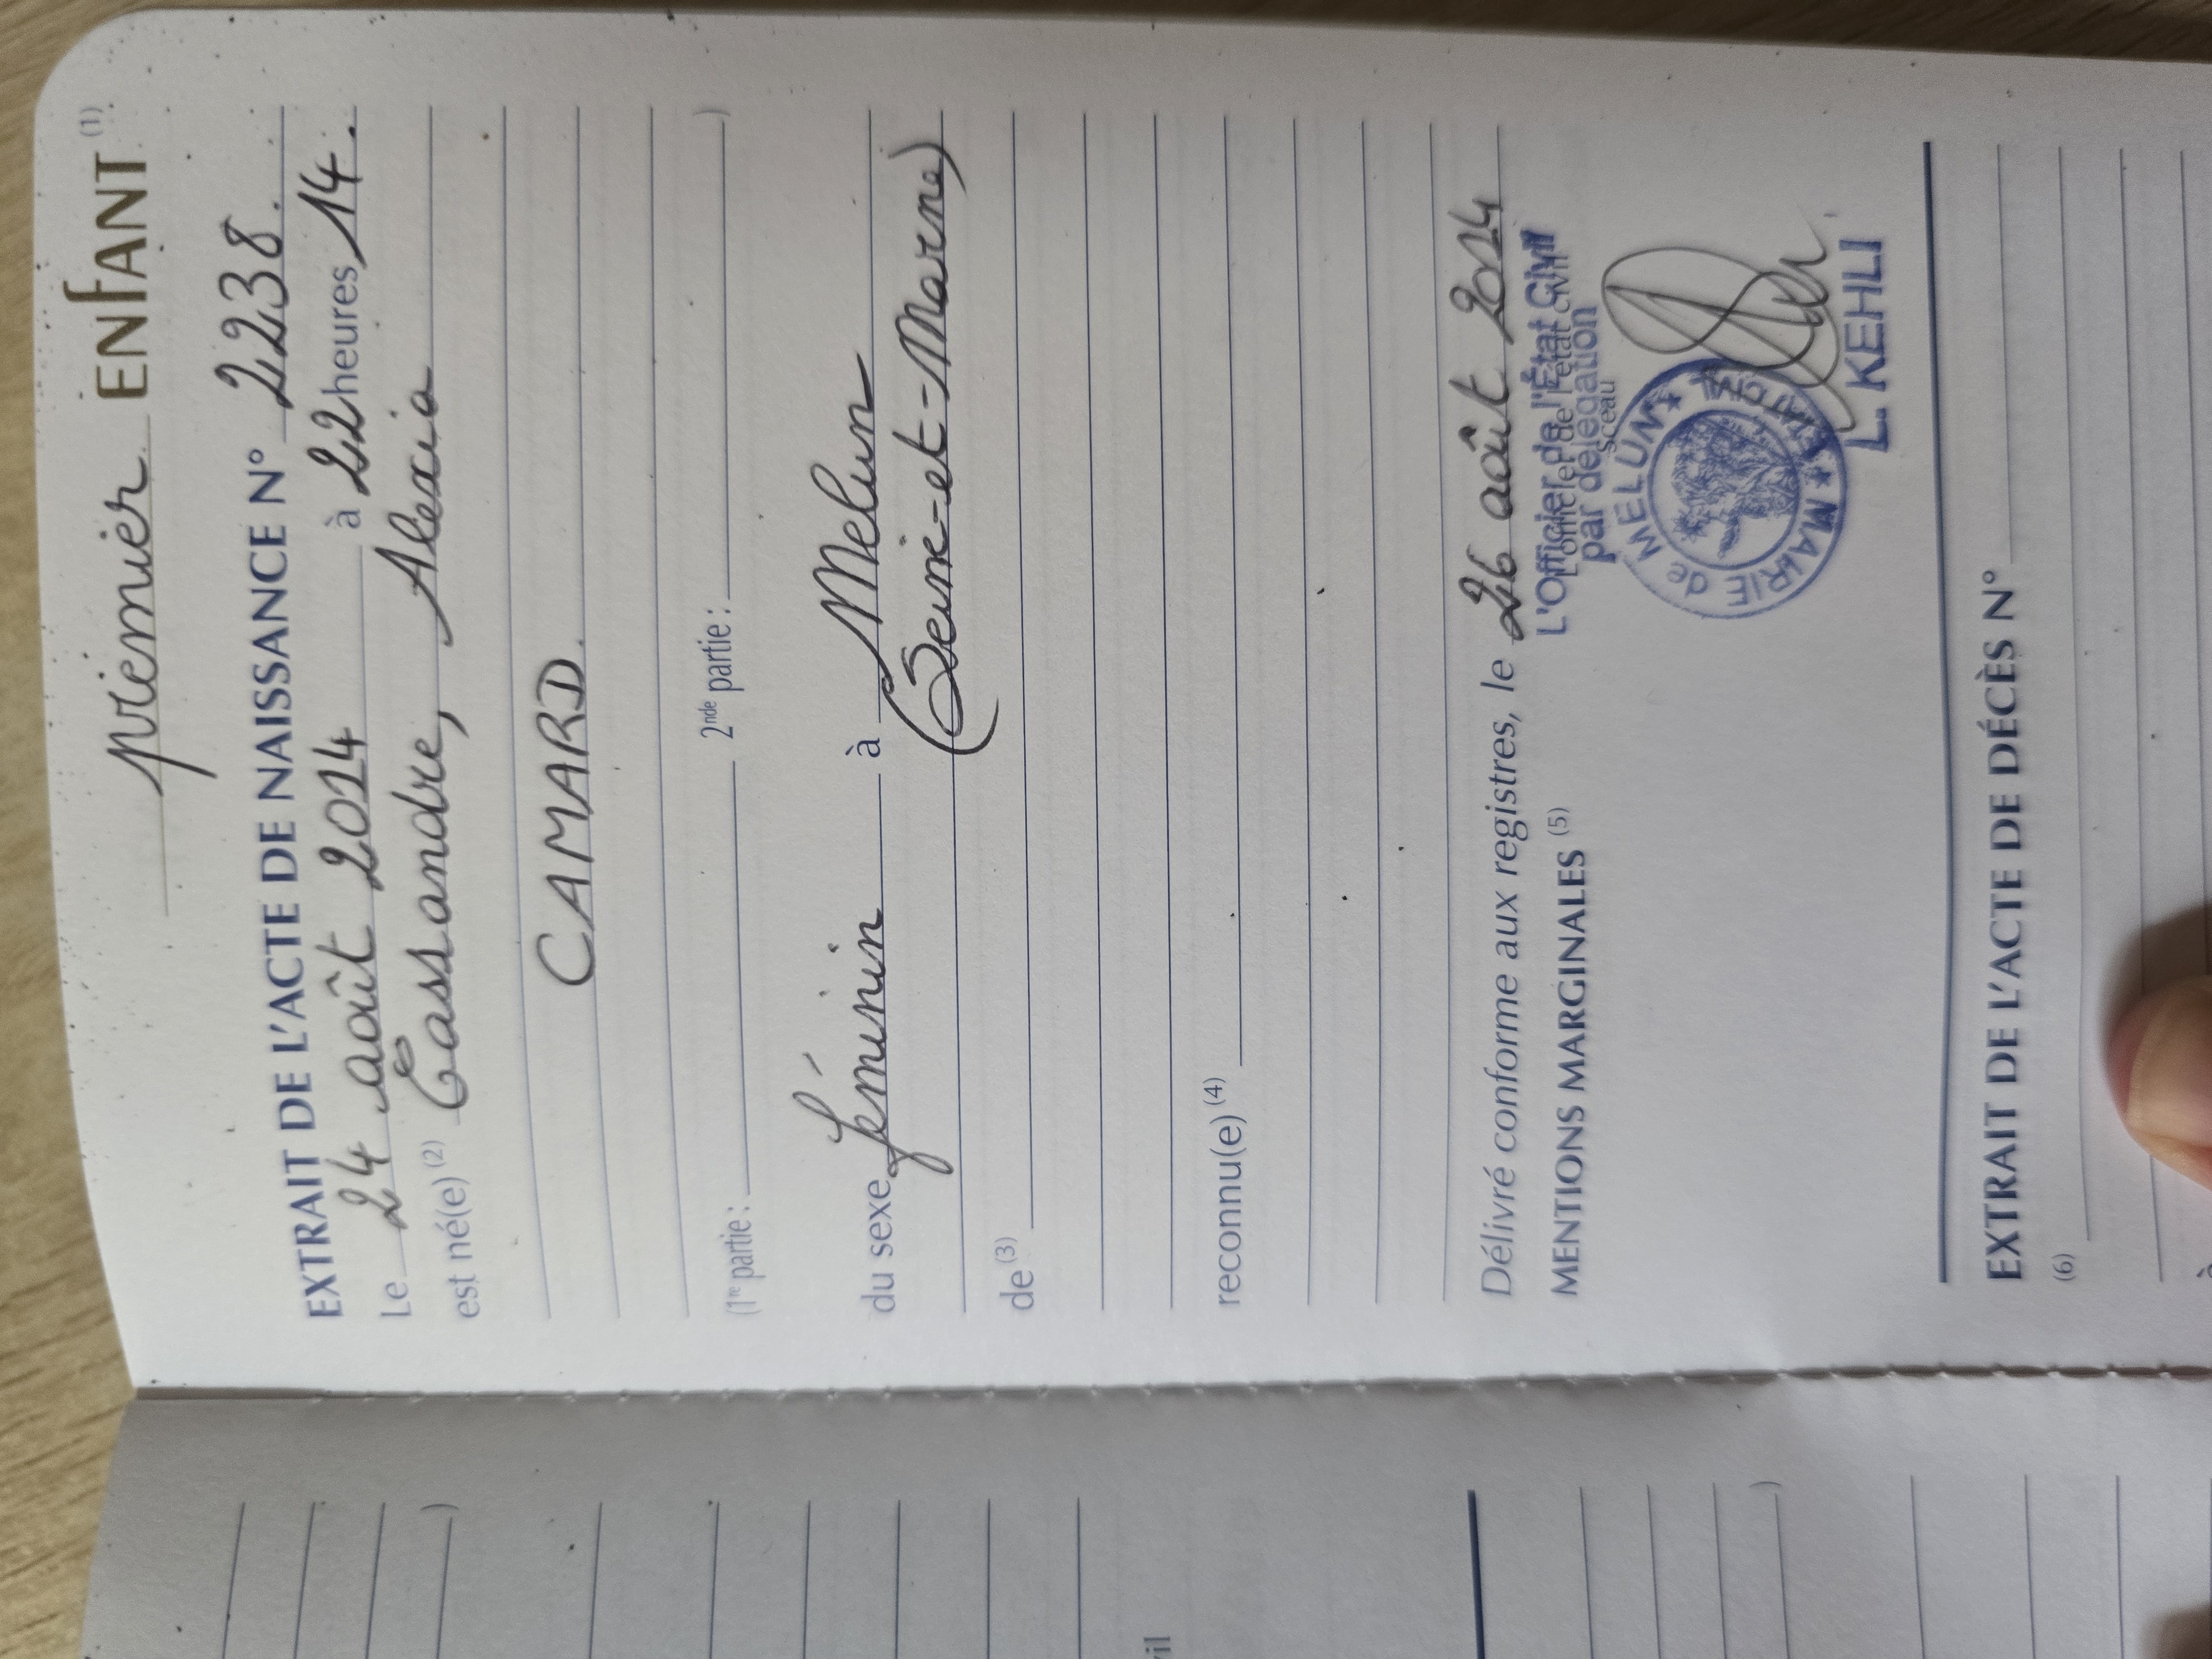 premier ENFANT (1)
EXTRAIT DE L'ACTE DE NAISSANCE N° 2238.
Le 24 août 2014 à 22 heures 14.
est né(e) (2) Cassandre, Alexia
CAMARD.
(1re partie : 2nde partie : )
du sexe féminin à Melun
(Seine-et-Marne)
de (3)
reconnu(e) (4)
Délivré conforme aux registres, le 26 août 2014
MENTIONS MARGINALES (5)
L'Officier de l'État Civil
L'officier de l'état civil
par délégation
sceau
MAIRIE de MELUN
ETAT CIVIL
L. KEHLI
EXTRAIT DE L'ACTE DE DÉCÈS N°
(6)
à
)
)
vil